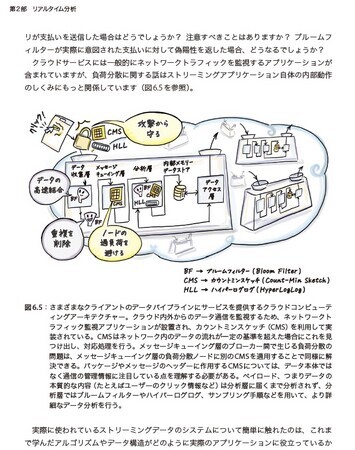 第2部 リアルタイム分析
リが支払いを送信した場合はどうでしょうか？ 注意すべきことはありますか？ ブルームフ
ィルターが実際に意図された支払いに対して偽陽性を返した場合、どうなるでしょうか？
クラウドサービスには一般的にネットワークトラフィックを監視するアプリケーションが
含まれていますが、負荷分散に関する話はストリーミングアプリケーション自体の内部動作
のしくみにもっと関係しています（図6.5を参照）。
攻撃から
守る
CMS
HLL
データ
収集層
メッセージ
キューイング層
分析層
内部メモリー
データストア
データ
アクセス
層
データの
高速結合
BF
CMS
BF
CMS
HLL
重複を
削除
ノードの
過負荷を
避ける
BF → ブルームフィルター (Bloom Filter)
CMS → カウントミンスケッチ (Count-Min Sketch)
HLL → ハイパーログログ (HyperLogLog)
図6.5：さまざまなクライアントのデータパイプラインにサービスを提供するクラウドコンピュー
ティングアーキテクチャー。クラウド内外からのデータ通信を監視するため、ネットワークト
ラフィック監視アプリケーションが設置され、カウントミンスケッチ（CMS）を利用して実
装されている。CMSはネットワーク内のデータの流れが一定の基準を超えた場合にこれを見
つけ出し、対応処理を行う。メッセージキューイング層のブローカー間で生じる負荷分散の
問題は、メッセージキューイング層の負荷分散ノードに別のCMSを適用することで同様に解
決できる。パッケージやメッセージのヘッダーに作用するCMSについては、データ本体では
なく通信の管理情報に注目している点を理解する必要がある。ペイロード、つまりデータの
本質的な内容（たとえばユーザーのクリック情報など）は分析層に届くまで分析されず、分
析層ではブルームフィルターやハイパーログログ、サンプリング手順などを用いて、より詳
細なデータ分析を行う。
実際に使われているストリーミングデータのシステムについて簡単に触れたのは、これま
で学んだアルゴリズムやデータ構造がどのように実際のアプリケーションに役立っているか